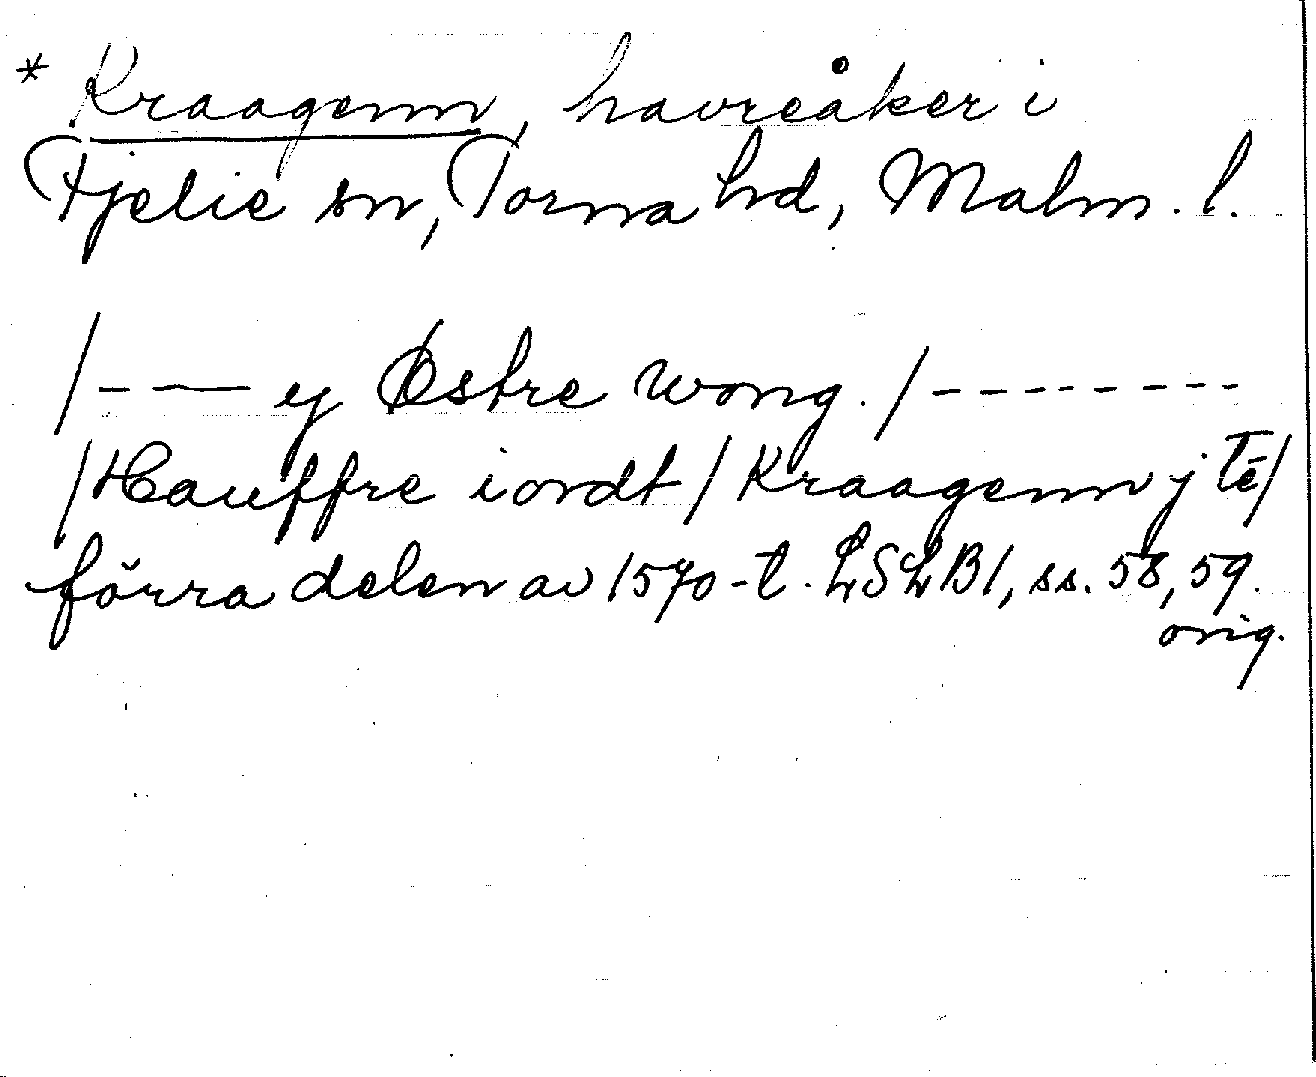 * Kraagenn, havreåker i
Fjelie sn, Torna hd, Malm. l.
/- — — ej Østre Wong. / - - - - - - - -
/Hauffre iordt / Kraagenn j tē/
förra delen av 1570-t. LSLB1, ss. 58, 59.
orig.